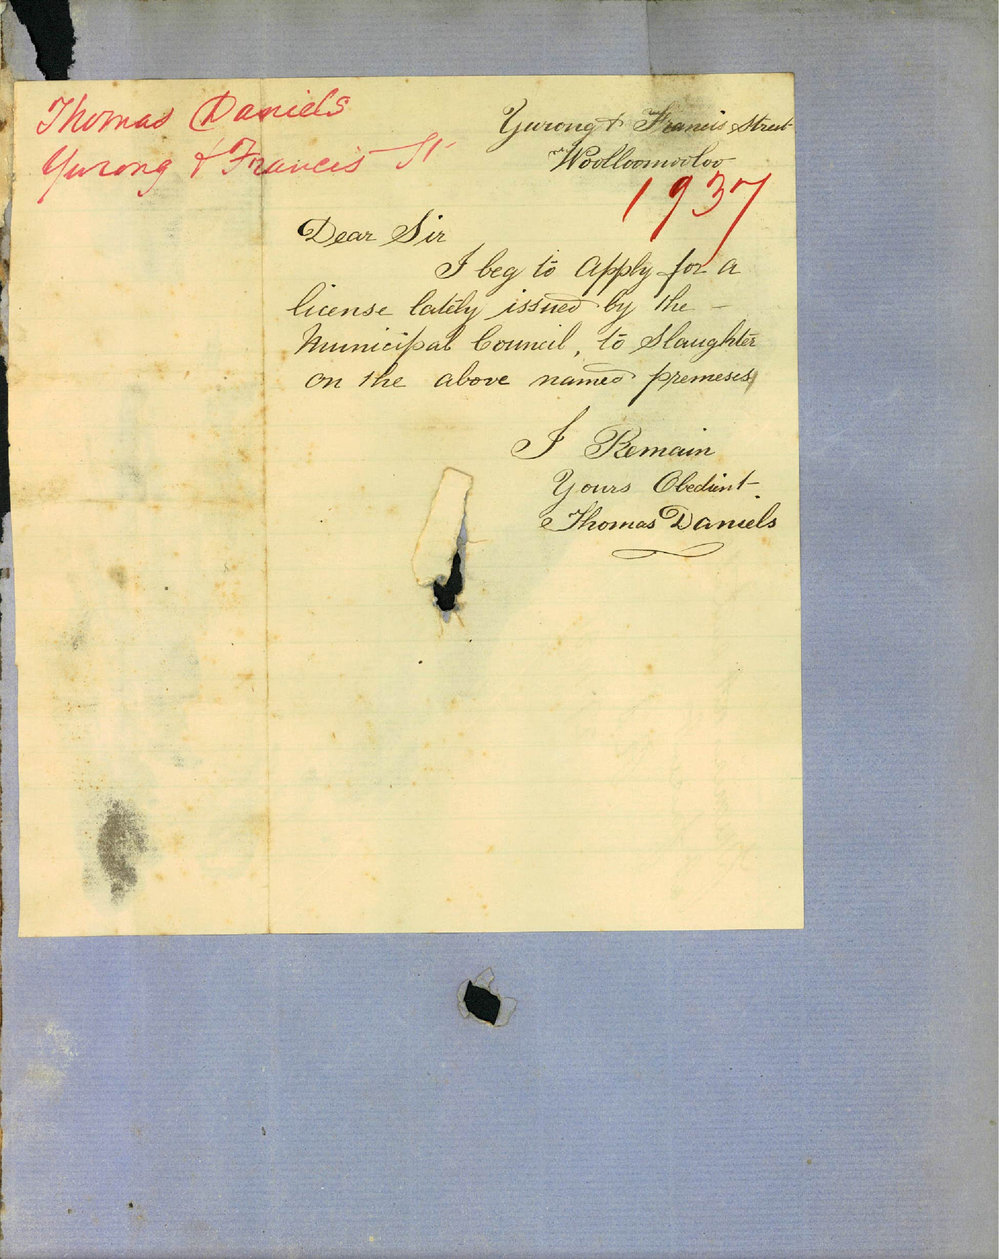 Thomas Daniels
Yurong & Francis St
Yurong & Francis Street
Woolloomooloo
1937
Dear Sir
I beg to Apply for a
license lately issued by the
Municipal Council, to Slaughter
on the above named premeses
I Remain
Yours Obedient
Thomas Daniels